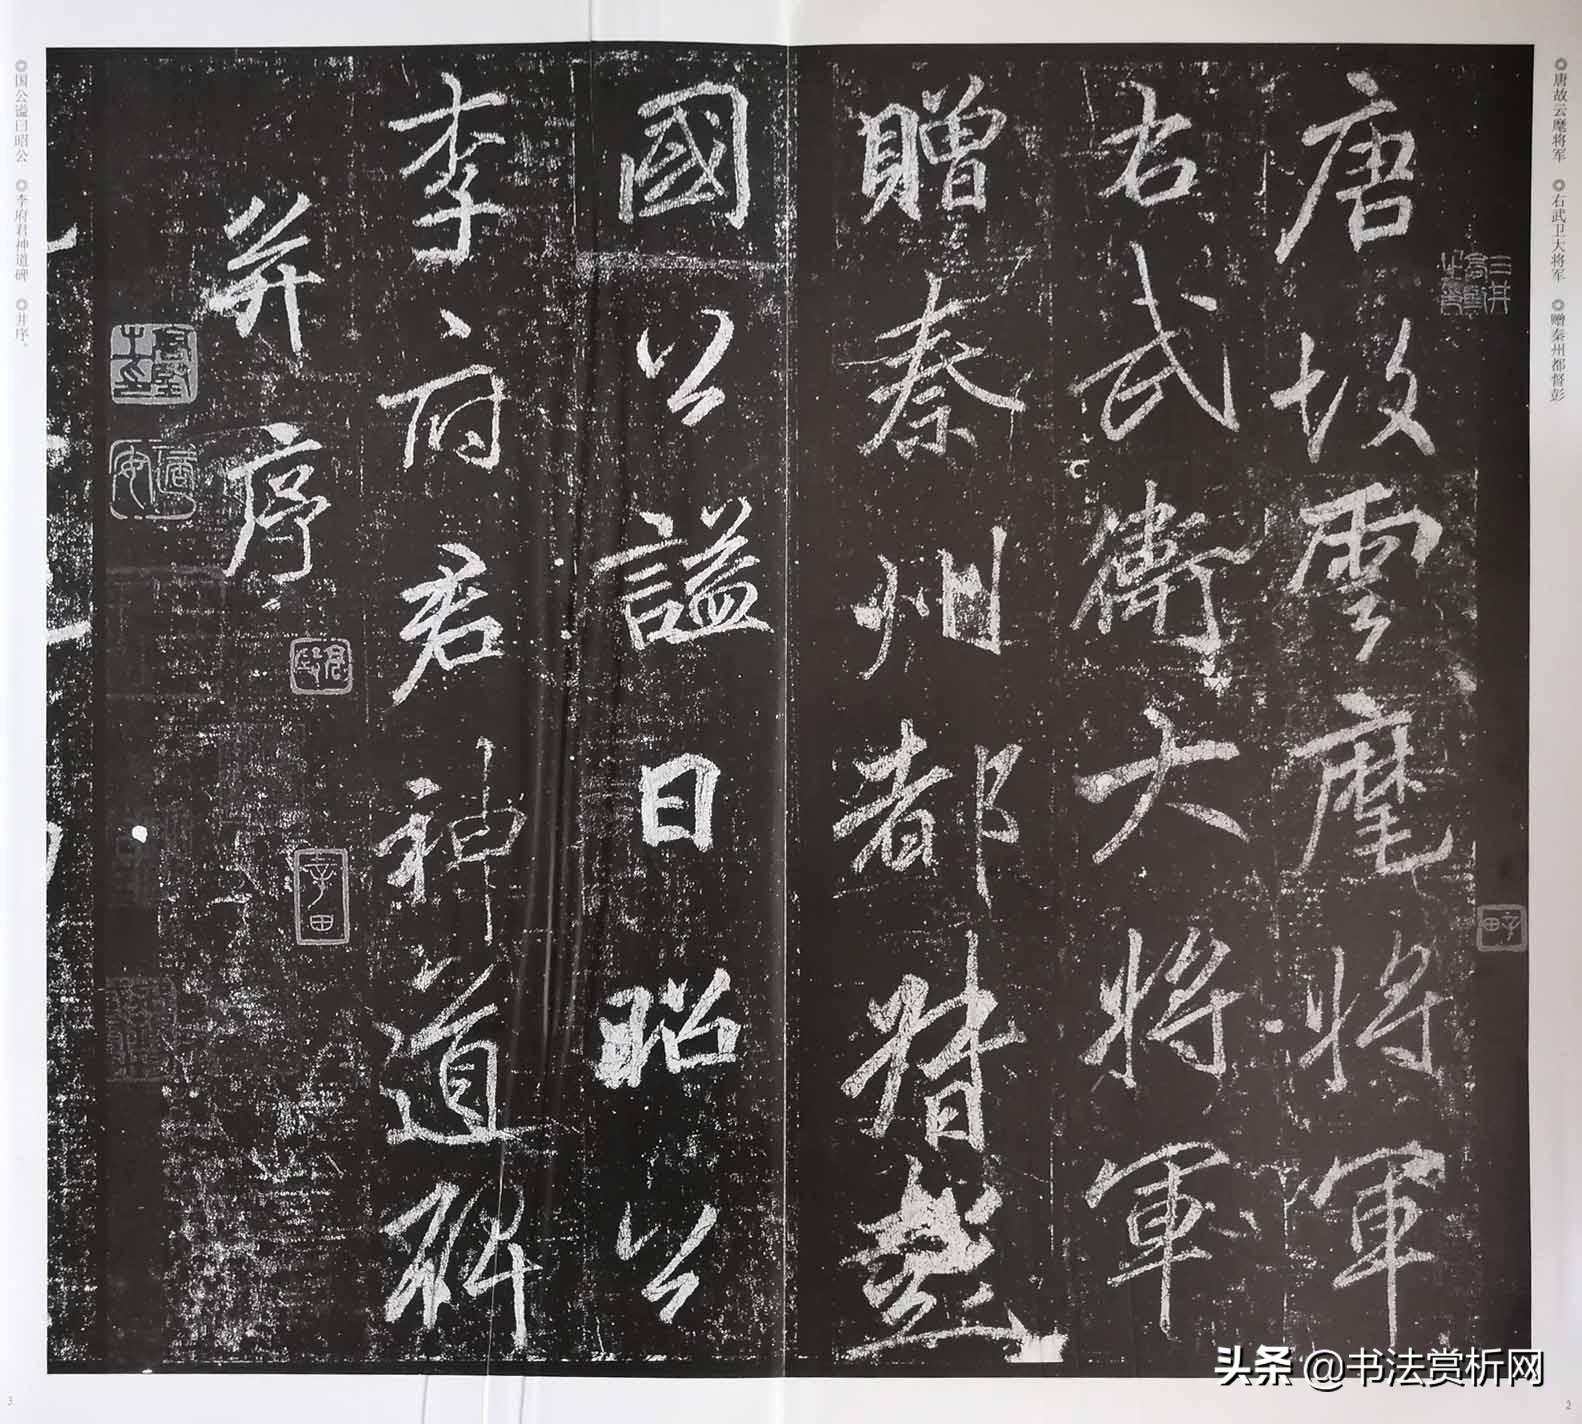 ◎唐故云麾将军 ◎右武卫大将军 ◎赠秦州都督彭
唐故雲麾將軍
右武衛大將軍
贈秦州都督彭
國公謚曰昭公
李府君神道碑
并序
◎国公谥曰昭公 ◎李府君神道碑 ◎并序。
2
3
头条 @书法赏析网